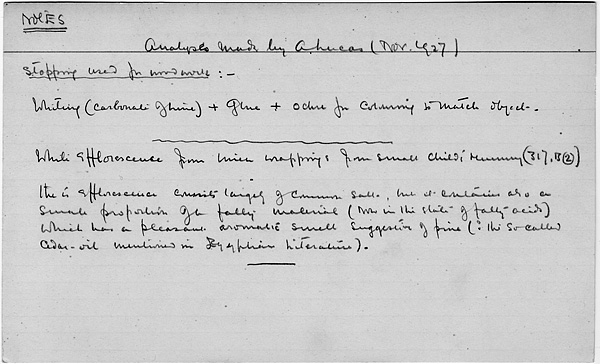 NOTES
Analyses made by A. Lucas (Nov. 1927)
Stopping used for woodwork :-
Whiting (carbonate of lime) + glue + ochre for colouring to match object.
White efflorescence from inner wrappings from small child's mummy (317, B(2))
This efflorescence consists largely of common salt, but it contains also a
small proportion of a fatty material (now in the state of fatty acids)
which has a pleasant aromatic smell suggestive of pine (? the so-called
Cedar-oil mentioned in Egyptian literature).